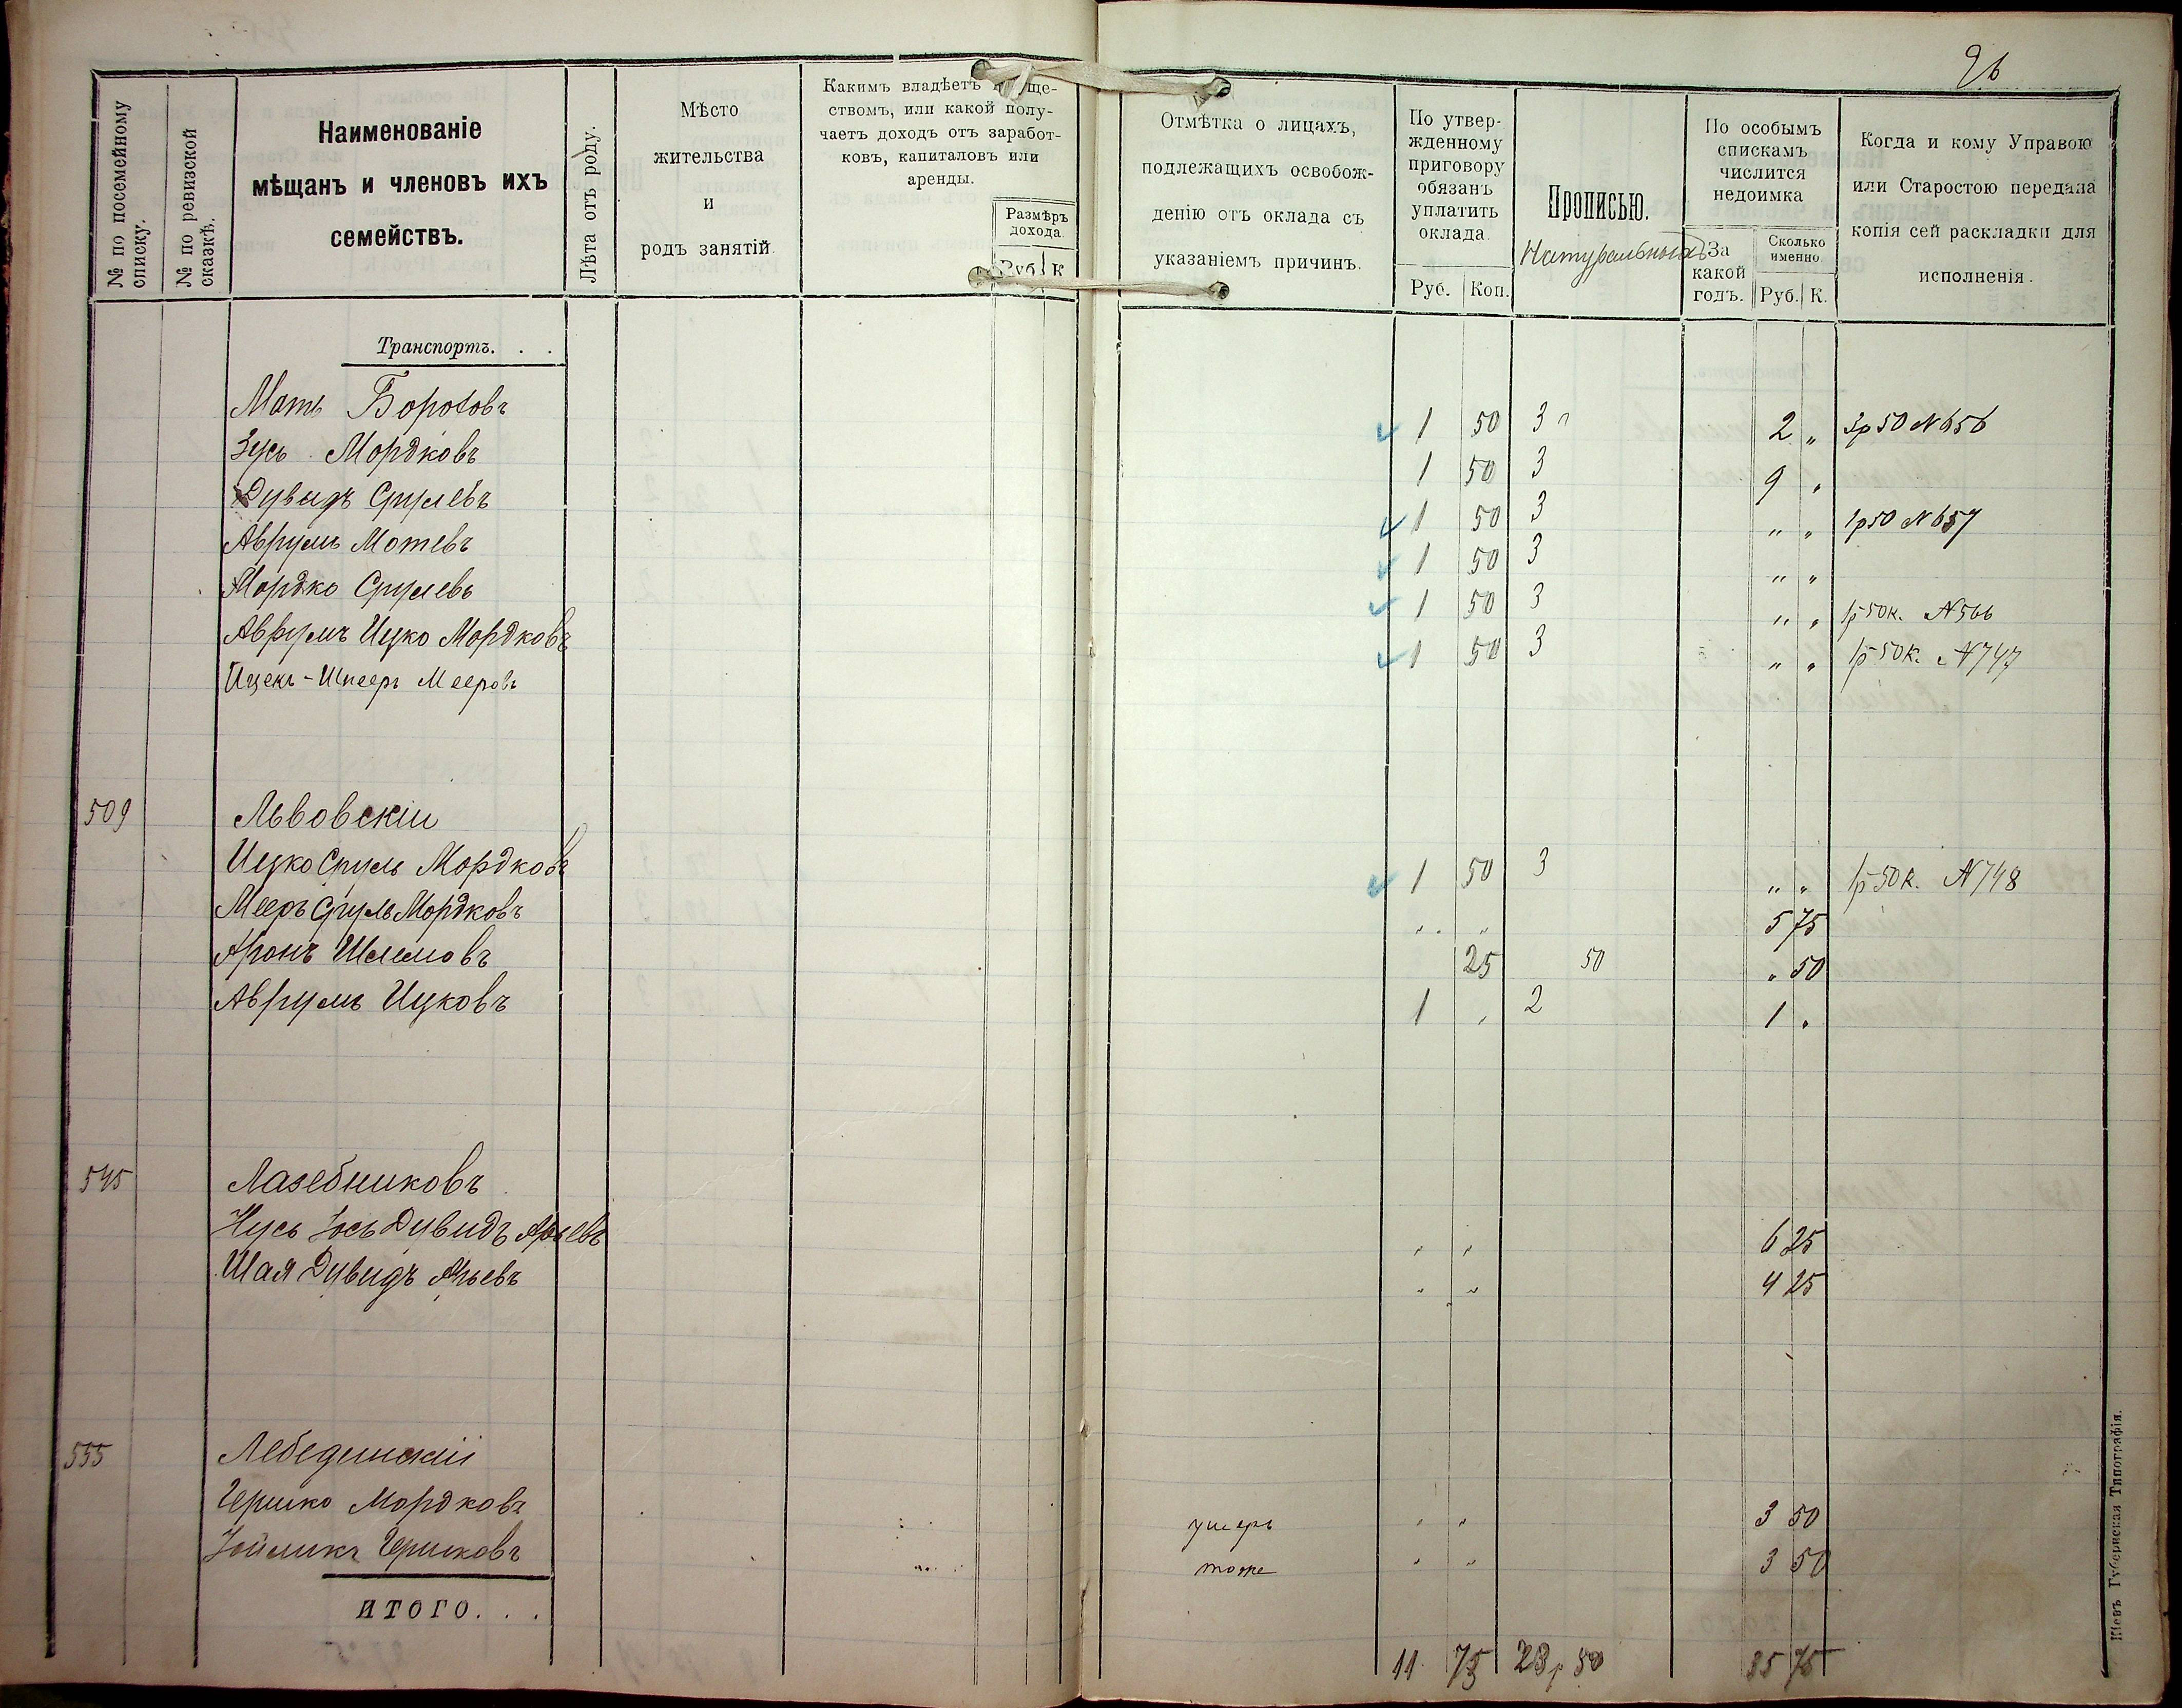 96
№ по посемейному списку.
№ по ревизской сказкѣ.
Наименованіе
мѣщанъ и членовъ ихъ
семействъ.
Лѣта отъ роду.
Мѣсто
жительства
и
родъ занятій.
Какимъ владѣетъ
ствомъ, или какой полу-
чаетъ доходъ отъ заработ-
ковъ, капиталовъ или
аренды.
Размѣръ
дохода.
Руб. К
Отмѣтка о лицахъ,
подлежащихъ освобож-
денію отъ оклада съ
указаніемъ причинъ.
По утвер-
жденному
приговору
обязанъ
уплатить
оклада.
Руб. Коп.
Прописью.
Натуральныхъ
По особымъ
спискамъ
числится
недоимка
За
какой
годъ.
Сколько
именно.
Руб. К.
Когда и кому Управою
или Старостою передана
копія сей раскладки для
исполненія.
Транспортъ. . .
Мать 1 50 3 2 „ 3р 50 N 656
Зусь Мордковъ 1 50 3 9 „
Дувидъ Срулевъ 1 50 3 „ „ 1р 50 N 657
Аврумъ Мотевъ 1 50 3 „ „
Мордко Срулевъ 1 50 3 „ „ 1р 50к. N 566
Аврумъ Ицко Мордковъ 1 50 3 „ „ 1р 50к. N 747
Ицекъ - Мееровъ
509 Львовскіи
Ицко Сруль Мордковъ 1 50 3 „ „ 1р 50к. N 748
Мееръ Сруль Мордковъ „ „ 5 75
Аронъ Шлемовъ 25 50 „ 50
Аврумъ Ицковъ 1 „ 2 1 „
545 Лазебниковъ
Нусь Іось Дувидъ Арьевъ „ „ 6 25
Шая Дувидъ Арьевъ „ „ 4 25
555
Гершко Мордковъ умеръ „ „ 3 50
Гершковъ тоже „ „ 3 50
ИТОГО. . .
11 75 23р 50 35 75
Кіевъ Губернская Типографія.